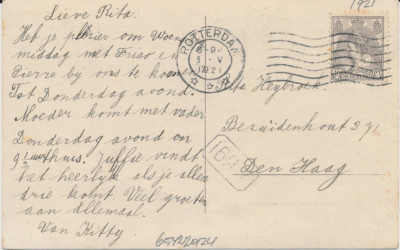 1921
Lieve Rita.
Heb je plezier om Woens
middag met Friso en
Pierre by ons te komen
Tot Donderdag avond.
Moeder komt met vader
Donderdag avond on
9½ uur thuis. Juffie vindt
het heerlyk als je alle
drie komt. Veel groeten
aan allemaal.
Van Kitty
ROTTERDAM
3 V
1921
Rita Heybroek.
Bezuidenhout 371
Den Haag
169
654220424